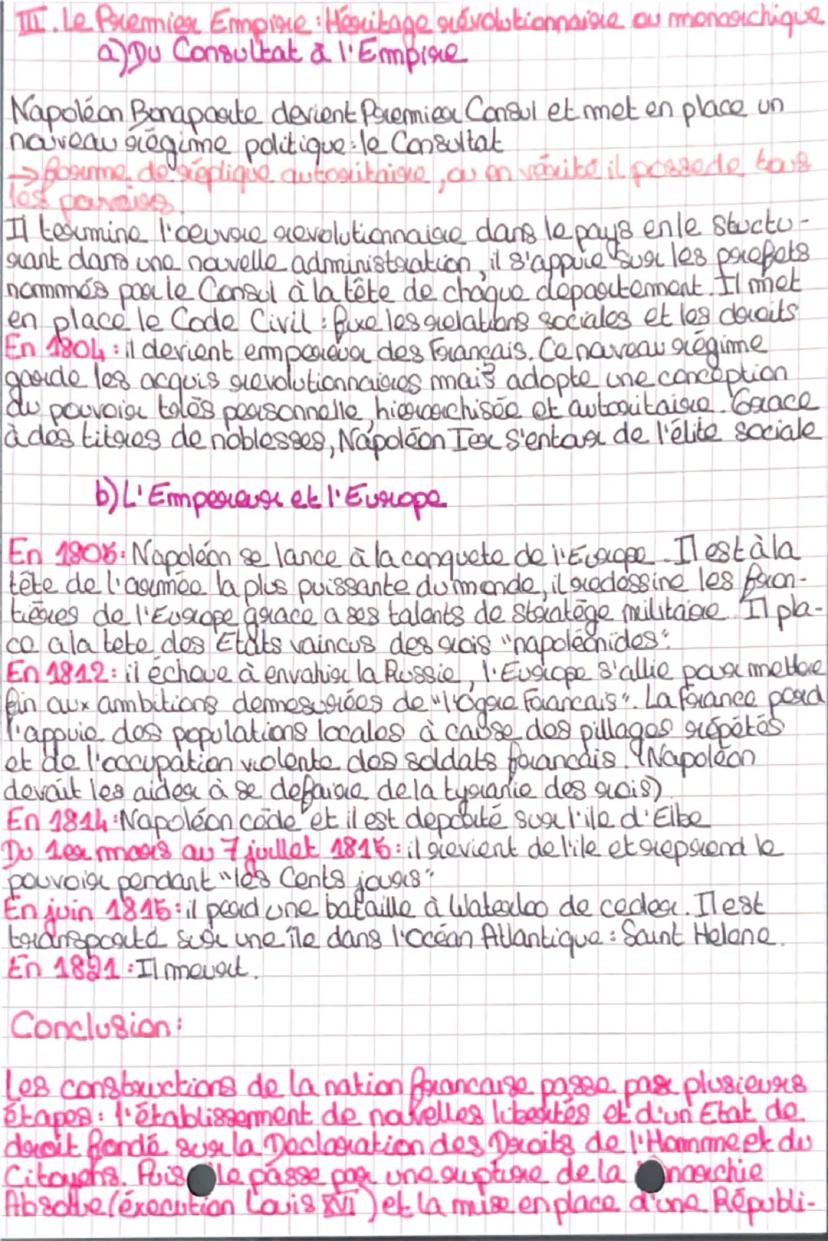 III. Le Premier Empire : Héritage révolutionnaire ou monarchique
a) Du Consultat à l'Empire
Napoléon Bonaparte devient Premier Consul et met en place un
nouveau régime politique : le Consultat
→ forme de réplique autoritaire, ou en vérité il possede tous
les pouvoirs.
Il termine l'oeuvre revolutionnaire dans le pays en le structu-
rant dans une nouvelle administration, il s'appuie sur les prefets
nommés par le Consul à la tête de chaque departement. Il met
en place le Code Civil : fixe les relations sociales et les droits
En 1804 : il devient empereur des Francais. Ce nouveau régime
garde les acquis revolutionnaires mais adopte une conception
du pouvoir très personnelle, hierarchisée et autoritaire. Grace
à des titres de noblesses, Napoléon Ier s'entour de l'élite sociale
b) L'Empereur et l'Europe
En 1805 : Napoléon se lance à la conquete de l'Europe. Il est à la
tête de l'armée la plus puissante du monde, il redessine les fron-
tières de l'Europe grace a ses talents de stratège militaire. Il pla-
ce a la tete des Etats vaincus des rois "napoléonides".
En 1812 : il échoue à envahir la Russie, l'Europe s'allie pour mettre
fin aux ambitions demesurées de "l'Ogre Francais". La France perd
l'appuie des populations locales à cause des pillages répétés
et de l'occupation violente des soldats francais. (Napoléon
devait les aider à se defaire de la tyranie des rois)
En 1814 : Napoléon cède et il est deporté sur l'ile d'Elbe
Du 1er mars au 7 juillet 1815 : il revient de l'ile et reprend le
pouvoir pendant "les Cents jours"
En juin 1815 : il perd une bataille à Waterloo de ceder. Il est
transporté sur une île dans l'océan Atlantique : Saint Helene.
En 1821 : Il meurt.
Conclusion :
Les constructions de la nation francaise passe par plusieurs
étapes : l'établissement de nouvelles libertés et d'un Etat de
droit fondé sur la Declaration des Droits de l'Homme et du
Citoyens. Puis le passe par une rupture de la narchie
Absolue (éxecution Louis XVI) et la mise en place d'une Républi-